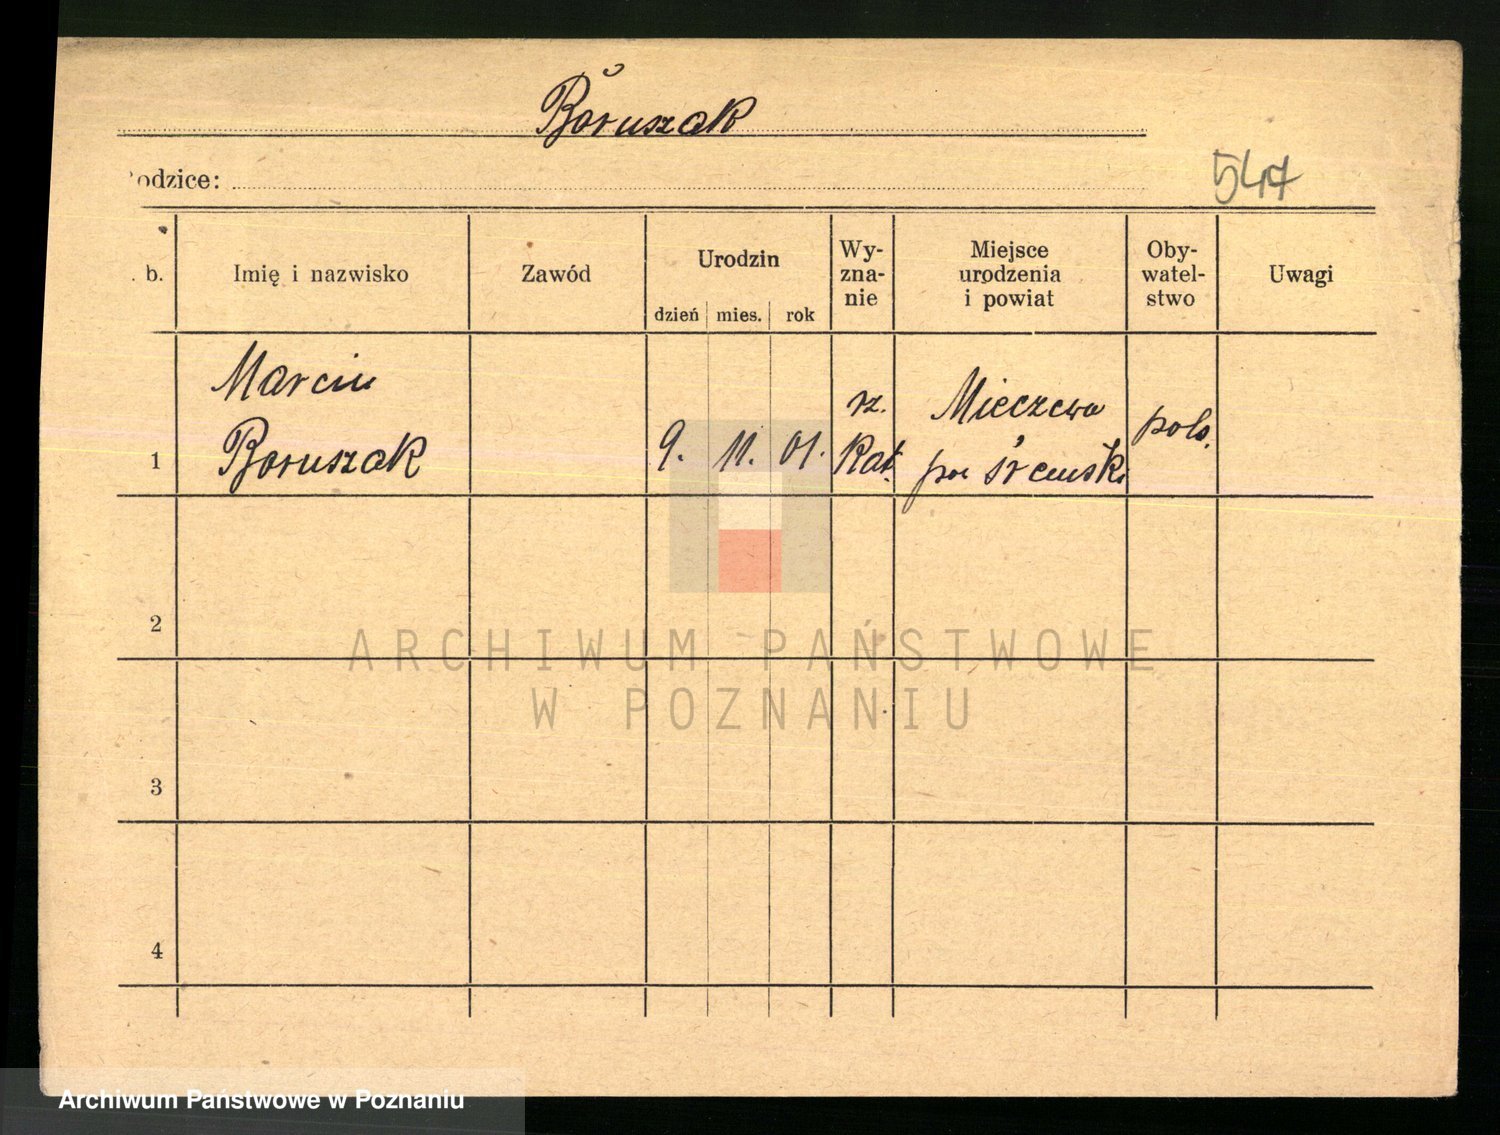 Boruszak
odzice:
547
b.
Imię i nazwisko
Zawód
Urodzin
dzień mies. rok
Wy-
zna-
nie
Miejsce
urodzenia
i powiat
Oby-
watel-
stwo
Uwagi
1
Marcin
Boruszak
9. 11. 01.
rz.
Kat.
Mieczewo
pow śremski
pols.
2
3
4
ARCHIWUM PAŃSTWOWE
W POZNANIU
Archiwum Państwowe w Poznaniu